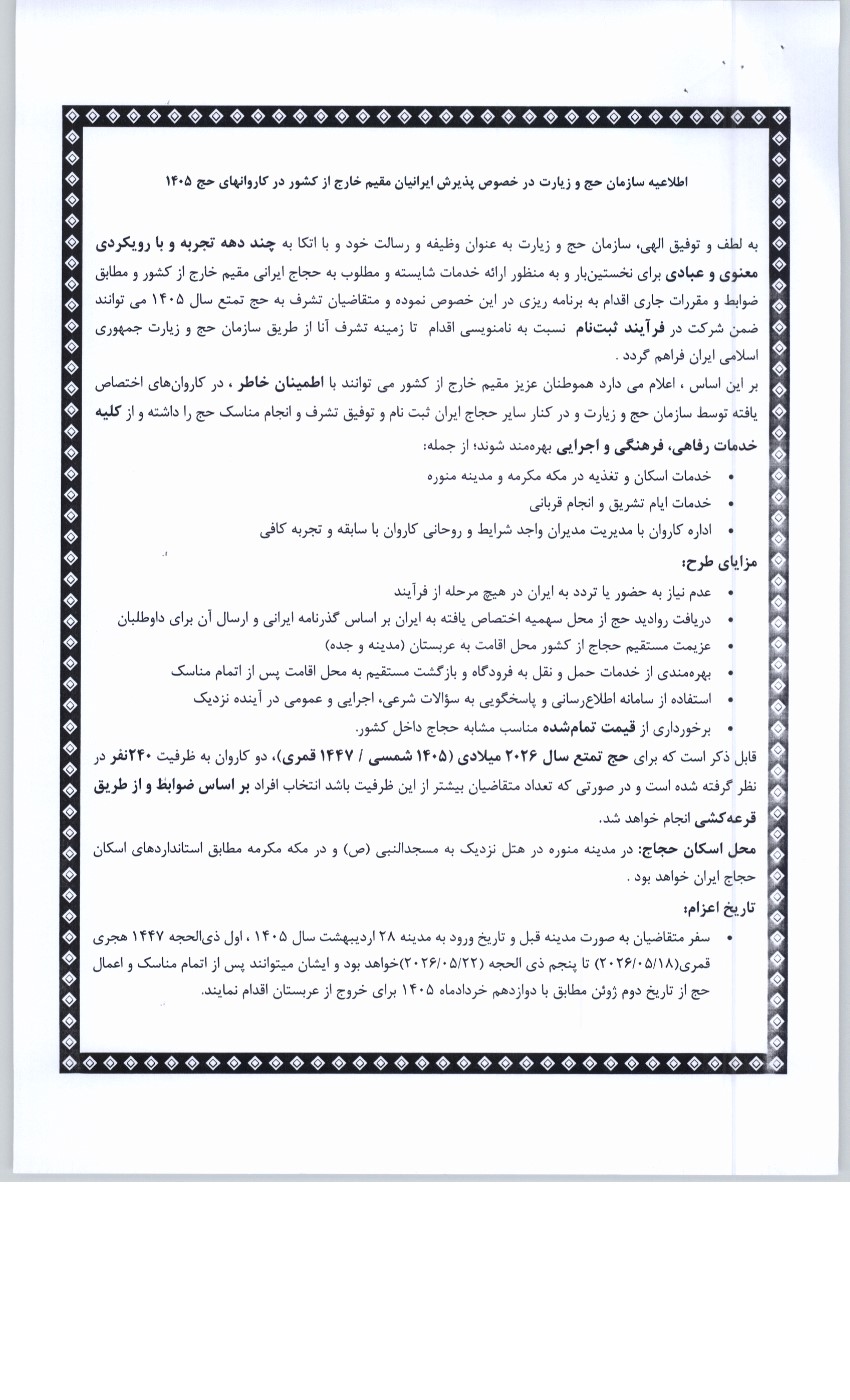 اطلاعیه سازمان حج و زیارت در خصوص پذیرش ایرانیان مقیم خارج از کشور در کاروانهای حج ۱۴۰۵
به لطف و توفیق الهی، سازمان حج و زیارت به عنوان وظیفه و رسالت خود و با اتکا به چند دهه تجربه و با رویکردی
معنوی و عبادی برای نخستین‌بار و به منظور ارائه خدمات شایسته و مطلوب به حجاج ایرانی مقیم خارج از کشور و مطابق
ضوابط و مقررات جاری اقدام به برنامه ریزی در این خصوص نموده و متقاضیان تشرف به حج تمتع سال ۱۴۰۵ می توانند
ضمن شرکت در فرآیند ثبت‌نام نسبت به نامنویسی اقدام تا زمینه تشرف آنا از طریق سازمان حج و زیارت جمهوری
اسلامی ایران فراهم گردد .
بر این اساس ، اعلام می دارد هموطنان عزیز مقیم خارج از کشور می توانند با اطمینان خاطر ، در کاروان‌های اختصاص
یافته توسط سازمان حج و زیارت و در کنار سایر حجاج ایران ثبت نام و توفیق تشرف و انجام مناسک حج را داشته و از کلیه
خدمات رفاهی، فرهنگی و اجرایی بهره‌مند شوند؛ از جمله:
• خدمات اسکان و تغذیه در مکه مکرمه و مدینه منوره
• خدمات ایام تشریق و انجام قربانی
• اداره کاروان با مدیریت مدیران واجد شرایط و روحانی کاروان با سابقه و تجربه کافی
مزایای طرح:
• عدم نیاز به حضور یا تردد به ایران در هیچ مرحله از فرآیند
• دریافت روادید حج از محل سهمیه اختصاص یافته به ایران بر اساس گذرنامه ایرانی و ارسال آن برای داوطلبان
• عزیمت مستقیم حجاج از کشور محل اقامت به عربستان (مدینه و جده)
• بهره‌مندی از خدمات حمل و نقل به فرودگاه و بازگشت مستقیم به محل اقامت پس از اتمام مناسک
• استفاده از سامانه اطلاع‌رسانی و پاسخگویی به سؤالات شرعی، اجرایی و عمومی در آینده نزدیک
• برخورداری از قیمت تمام‌شده مناسب مشابه حجاج داخل کشور.
قابل ذکر است که برای حج تمتع سال ۲۰۲۶ میلادی (۱۴۰۵ شمسی / ۱۴۴۷ قمری)، دو کاروان به ظرفیت ۲۴۰نفر در
نظر گرفته شده است و در صورتی که تعداد متقاضیان بیشتر از این ظرفیت باشد انتخاب افراد بر اساس ضوابط و از طریق
قرعه‌کشی انجام خواهد شد.
محل اسکان حجاج: در مدینه منوره در هتل نزدیک به مسجدالنبی (ص) و در مکه مکرمه مطابق استانداردهای اسکان
حجاج ایران خواهد بود .
تاریخ اعزام:
• سفر متقاضیان به صورت مدینه قبل و تاریخ ورود به مدینه ۲۸ اردیبهشت سال ۱۴۰۵ ، اول ذی‌الحجه ۱۴۴۷ هجری
قمری(۲۰۲۶/۰۵/۱۸) تا پنجم ذی الحجه (۲۰۲۶/۰۵/۲۲)خواهد بود و ایشان میتوانند پس از اتمام مناسک و اعمال
حج از تاریخ دوم ژوئن مطابق با دوازدهم خردادماه ۱۴۰۵ برای خروج از عربستان اقدام نمایند.